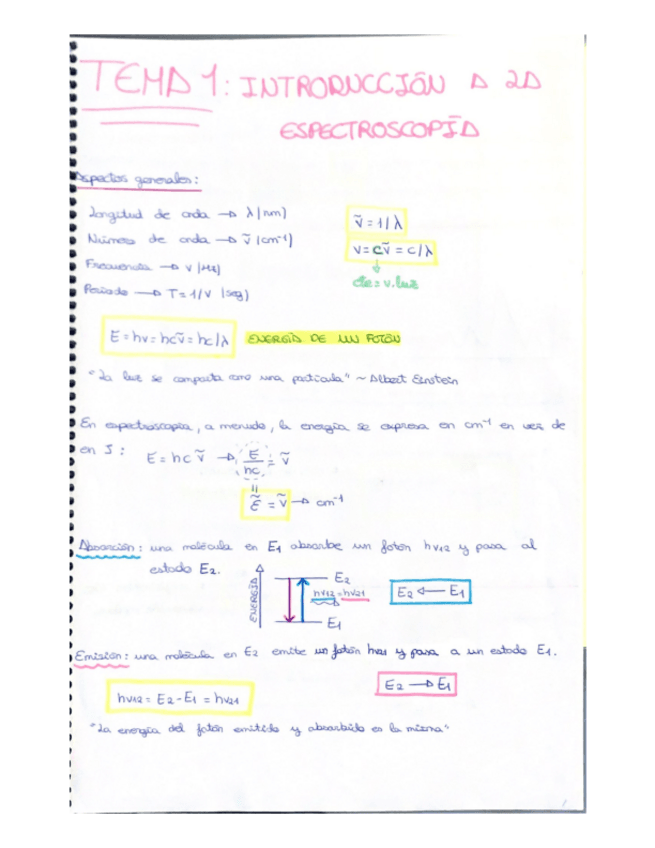 TEMA 1: INTRODUCCIÓN A LA
ESPECTROSCOPÍA
Aspectos generales:
Longitud de onda → λ (nm)
ṽ = 1/λ
Número de onda → ṽ (cm⁻¹)
ν = cṽ = c/λ
Frecuencia → ν (Hz)
cte = v. luz
Período → T = 1/ν (seg)
E = hν = hcṽ = hc/λ ENERGÍA DE UN FOTÓN
"La luz se comporta como una partícula" ~ Albert Einstein
En espectroscopia, a menudo, la energía se expresa en cm⁻¹ en vez de
en J: E = hcṽ → E/hc = ṽ
=
Ẽ = ṽ → cm⁻¹
Absorción: una molécula en E1 absorbe un fotón hν12 y pasa al
estado E2.
ENERGÍA
E2
hν12 = hν21
E1
E2 ← E1
Emisión: una molécula en E2 emite un fotón hν21 y pasa a un estado E1.
E2 → E1
hν12 = E2 - E1 = hν21
"La energía del fotón emitido y absorbido es la misma"